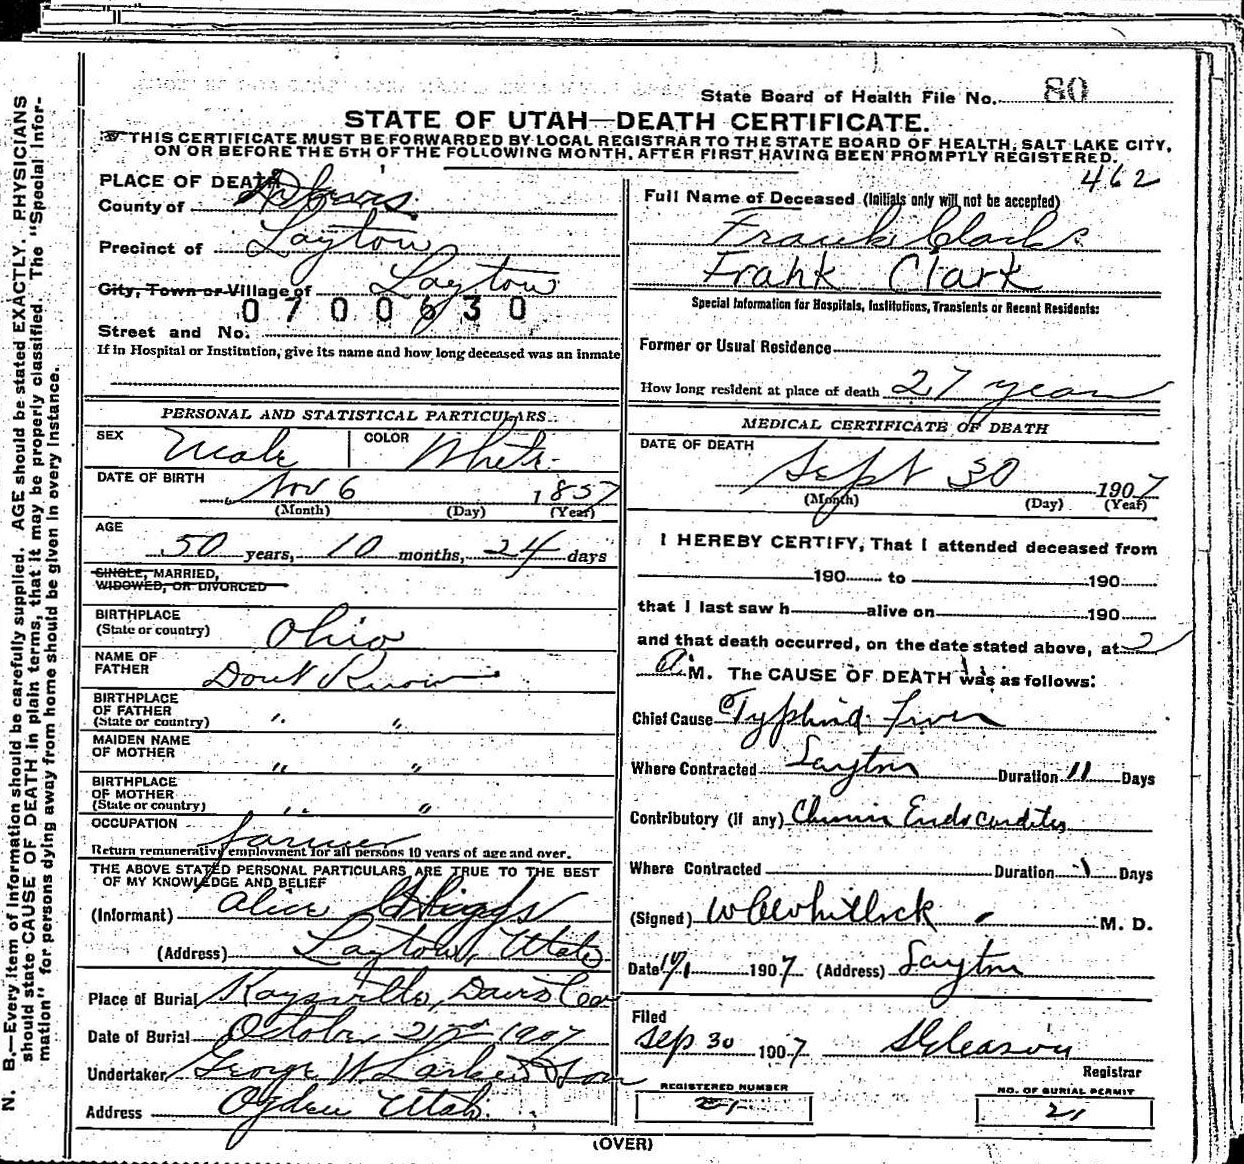 State Board of Health File No. 80
STATE OF UTAH—DEATH CERTIFICATE.
THIS CERTIFICATE MUST BE FORWARDED BY LOCAL REGISTRAR TO THE STATE BOARD OF HEALTH, SALT LAKE CITY,
ON OR BEFORE THE 5TH OF THE FOLLOWING MONTH, AFTER FIRST HAVING BEEN PROMPTLY REGISTERED.
462
PLACE OF DEATH
County of Davis
Precinct of Layton
City, Town or Village of Layton
0700630
Street and No.
If in Hospital or Institution, give its name and how long deceased was an inmate
PERSONAL AND STATISTICAL PARTICULARS
SEX Male COLOR White
DATE OF BIRTH Nov 6 1857
(Month) (Day) (Year)
AGE
50 years, 10 months, 24 days
SINGLE, MARRIED,
WIDOWED, OR DIVORCED
BIRTHPLACE
(State or country) Ohio
NAME OF
FATHER Dont Know
BIRTHPLACE
OF FATHER
(State or country) " "
MAIDEN NAME
OF MOTHER " "
BIRTHPLACE
OF MOTHER
(State or country) " "
OCCUPATION farmer
Return remunerative employment for all persons 10 years of age and over.
THE ABOVE STATED PERSONAL PARTICULARS ARE TRUE TO THE BEST
OF MY KNOWLEDGE AND BELIEF
(Informant) Alice
(Address) Layton, Utah
Place of Burial Kaysville, Davis Co
Date of Burial October 2nd 1907
Undertaker George W Larkin & Son
Address Ogden Utah.
Full Name of Deceased (Initials only will not be accepted)
Frank Clark
Frank Clark
Special Information for Hospitals, Institutions, Transients or Recent Residents:
Former or Usual Residence
How long resident at place of death 27 years
MEDICAL CERTIFICATE OF DEATH
DATE OF DEATH
Sept 30 1907
(Month) (Day) (Year)
I HEREBY CERTIFY, That I attended deceased from
190 to 190
that I last saw h alive on 190
and that death occurred, on the date stated above, at 2
a M. The CAUSE OF DEATH was as follows:
Chief Cause Typhoid Fever
Where Contracted Layton Duration 11 Days
Contributory (if any) Chronic Endocarditis
Where Contracted Duration Days
(Signed) W C Whitlock M. D.
Date 10/1 1907 (Address) Layton
Filed
Sep 30 1907 Gleason
Registrar
REGISTERED NUMBER
21
NO. OF BURIAL PERMIT
21
(OVER)
N. B.—Every item of information should be carefully supplied. AGE should be stated EXACTLY. PHYSICIANS
should state CAUSE OF DEATH in plain terms, that it may be properly classified. The "Special Infor-
mation" for persons dying away from home should be given in every instance.